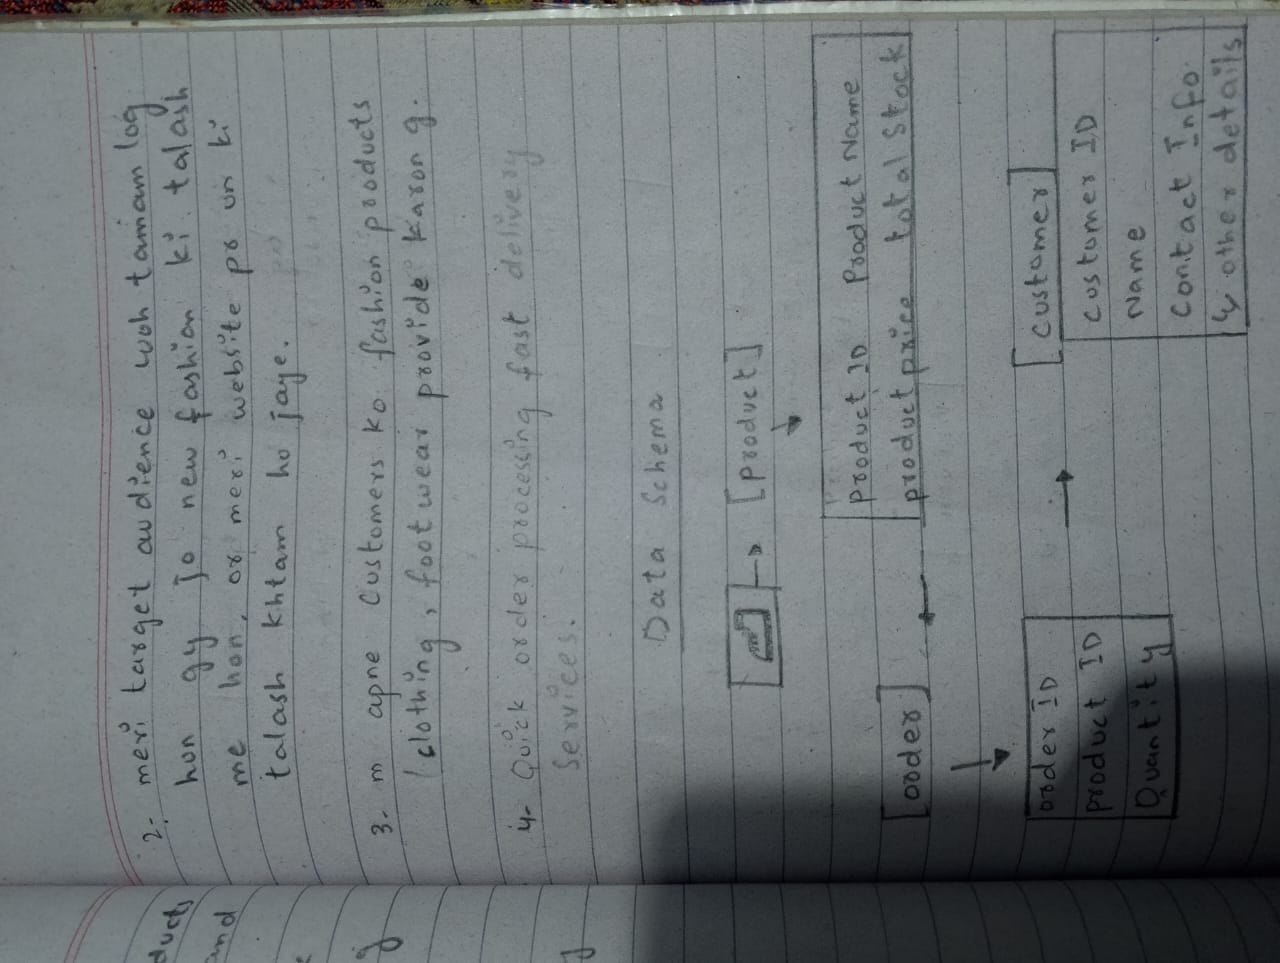 2- meri target audience woh tamam log
hon gy jo new fashion ki talash
me hon, or meri website pr un ki
talash khtam ho jaye.
3- m apne Customers ko fashion products
(clothing, footwear provide karon g.
4- Quick order processing fast delivery
Services.
Data Schema
[product]
product ID product Name
product price total Stock
[order]
order ID
product ID
Quantity
[customer]
customer ID
Name
Contact Info
& other details
ducts
and